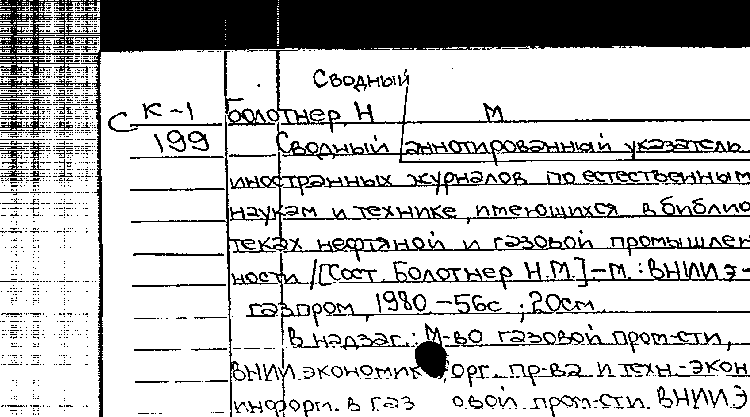 Сводный
С К-1 Болотнер, Н М
199 Сводный аннотированный указатель
иностранных журналов по естественным
наукам и технике, имеющихся в библио
теках нефтяной и газовой промышлен
ности /[Сост. Болотнер Н.М.]-М.: ВНИИЭ-
газпром, 1980 -56с ; 20см
В надзаг.: М-во газовой пром-сти,
ВНИИ экономик , орг. пр-ва и техн.-экон
информ. в газ овой пром-сти. ВНИИЭ